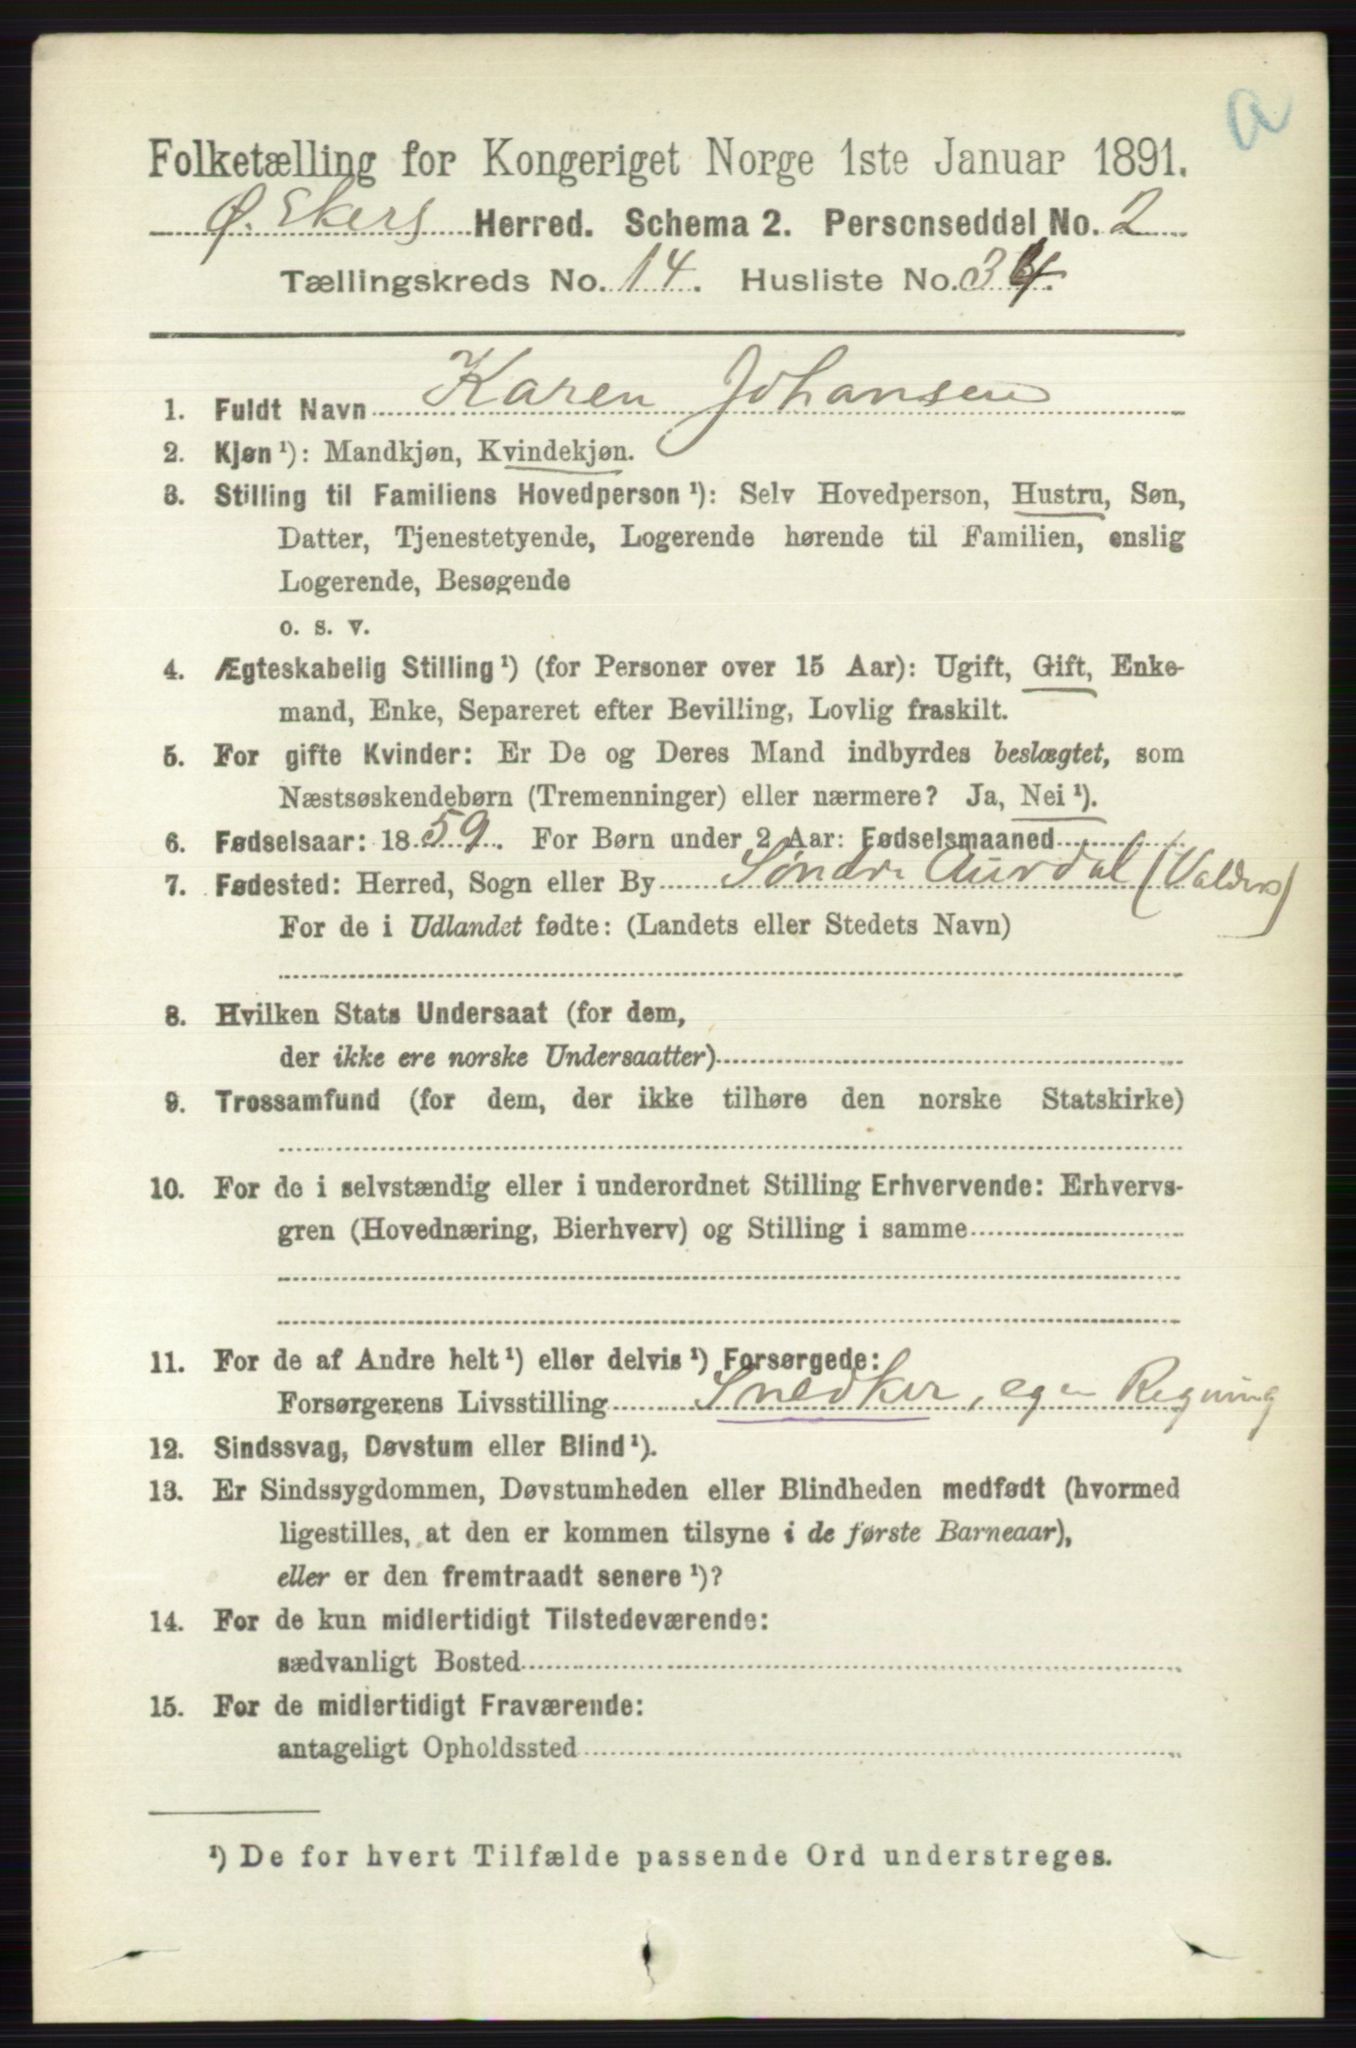 a
Folketælling for Kongeriget Norge 1ste Januar 1891.
Ø. Ekers Herred. Schema 2. Personseddel No. 2
Tællingskreds No. 14. Husliste No. 34.
1. Fuldt Navn Karen Johansen
2. Kjøn ¹): Mandkjøn, Kvindekjøn.
3. Stilling til Familiens Hovedperson ¹): Selv Hovedperson, Hustru, Søn,
Datter, Tjenestetyende, Logerende hørende til Familien, enslig
Logerende, Besøgende
o. s. v.
4. Ægteskabelig Stilling ¹) (for Personer over 15 Aar): Ugift, Gift, Enke-
mand, Enke, Separeret efter Bevilling, Lovlig fraskilt.
5. For gifte Kvinder: Er De og Deres Mand indbyrdes beslægtet, som
Næstsøskendebørn (Tremenninger) eller nærmere? Ja, Nei ¹).
6. Fødselsaar: 1859. For Børn under 2 Aar: Fødselsmaaned
7. Fødested: Herred, Sogn eller By Søndre Aurdal (Valders)
For de i Udlandet fødte: (Landets eller Stedets Navn)
8. Hvilken Stats Undersaat (for dem,
der ikke ere norske Undersaatter)
9. Trossamfund (for dem, der ikke tilhøre den norske Statskirke)
10. For de i selvstændig eller i underordnet Stilling Erhvervende: Erhvervs-
gren (Hovednæring, Bierhverv) og Stilling i samme
11. For de af Andre helt ¹) eller delvis ¹) Forsørgede:
Forsørgerens Livsstilling Snedker, egen Regning
12. Sindssvag, Døvstum eller Blind ¹).
13. Er Sindssygdommen, Døvstumheden eller Blindheden medfødt (hvormed
ligestilles, at den er kommen tilsyne i de første Barneaar),
eller er den fremtraadt senere ¹)?
14. For de kun midlertidigt Tilstedeværende:
sædvanligt Bosted
15. For de midlertidigt Fraværende:
antageligt Opholdssted
¹) De for hvert Tilfælde passende Ord understreges.